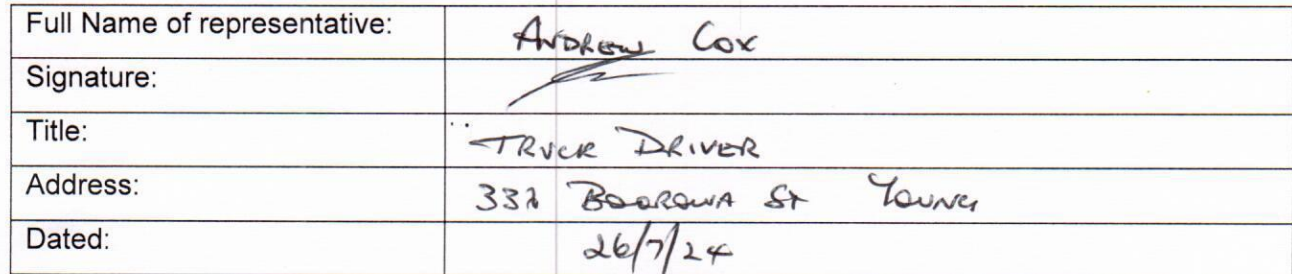 Full Name of representative: ANDREW COX
Signature:
Title: TRUCK DRIVER
Address: 332 BOOROWA ST YOUNG
Dated: 26/7/24